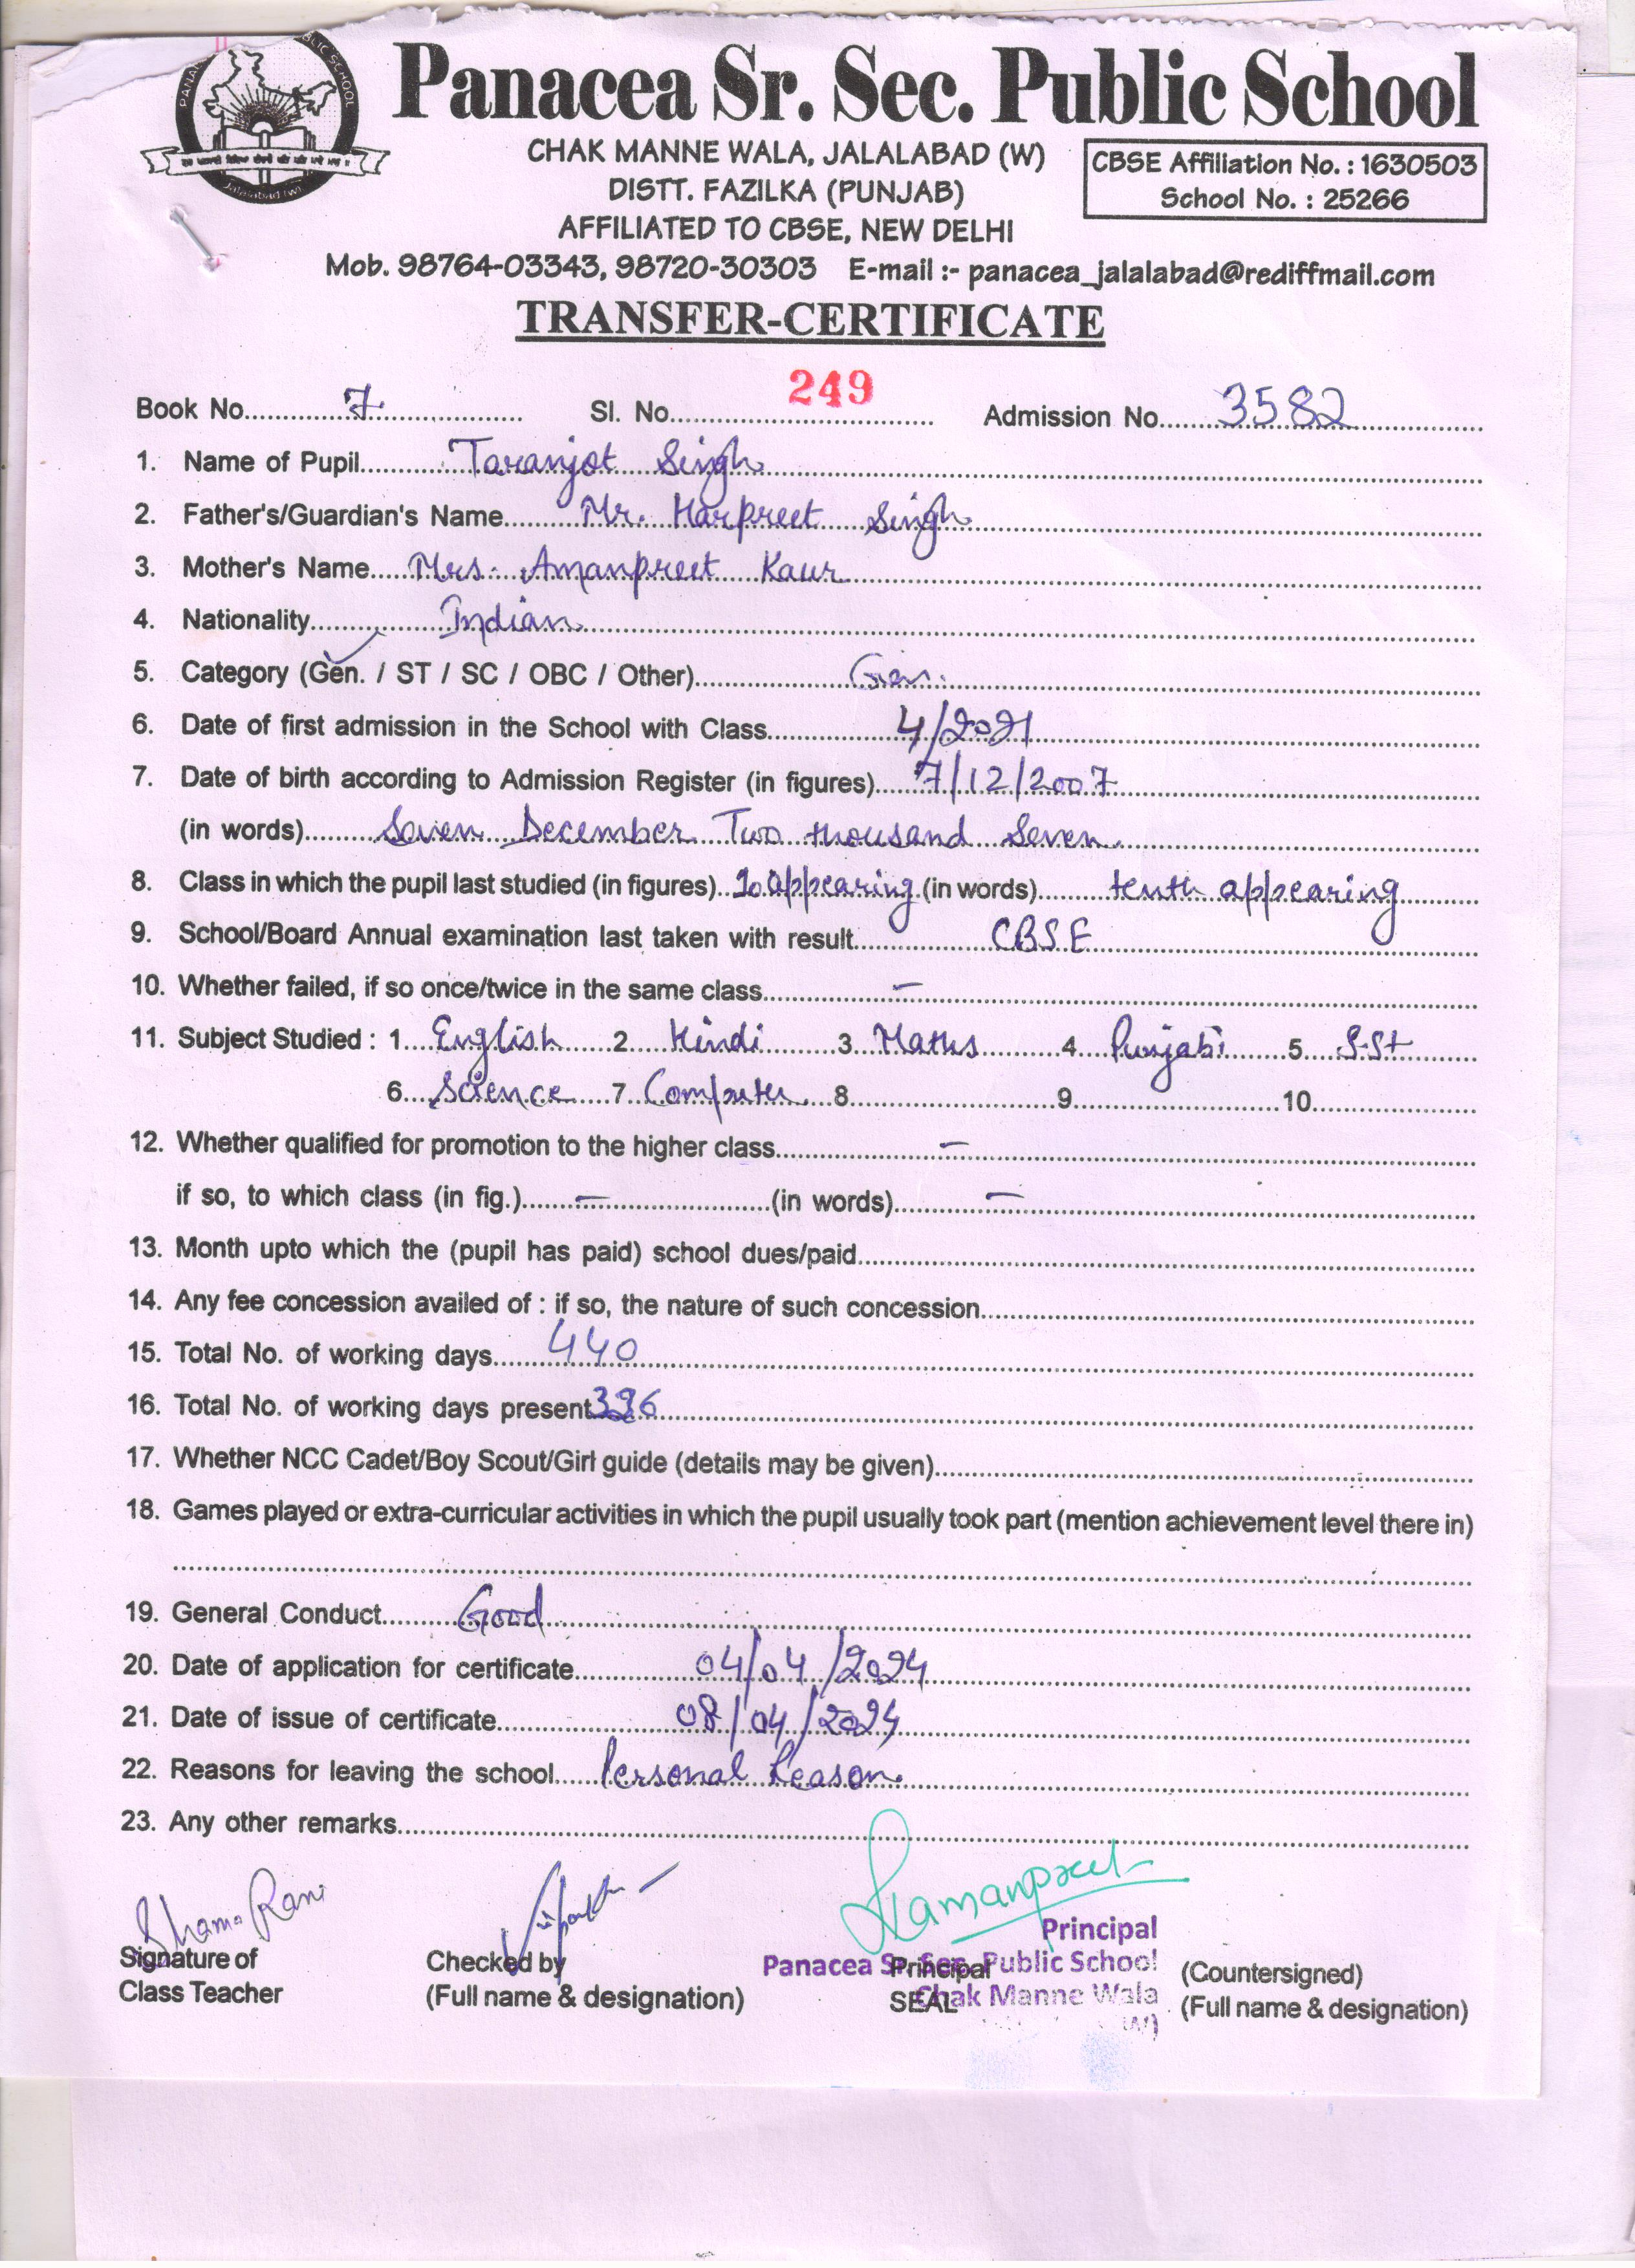 PUBLIC SCHOOL
Panacea Sr. Sec. Public School
CHAK MANNE WALA, JALALABAD (W)
DISTT. FAZILKA (PUNJAB)
AFFILIATED TO CBSE, NEW DELHI
CBSE Affiliation No. : 1630503
School No. : 25266
Mob. 98764-03343, 98720-30303 E-mail :- panacea_jalalabad@rediffmail.com
TRANSFER-CERTIFICATE
Book No. 7 Sl. No. 249 Admission No. 3582
1. Name of Pupil Taranjot Singh
2. Father's/Guardian's Name Mr. Harpreet Singh
3. Mother's Name Mrs. Amanpreet Kaur
4. Nationality Indian
5. Category (Gen. / ST / SC / OBC / Other) Gen.
6. Date of first admission in the School with Class 4/2021
7. Date of birth according to Admission Register (in figures) 7/12/2007
(in words) Seven December Two thousand Seven
8. Class in which the pupil last studied (in figures) 10 appearing (in words) tenth appearing
9. School/Board Annual examination last taken with result CBSE
10. Whether failed, if so once/twice in the same class —
11. Subject Studied : 1 English 2 Hindi 3 Maths 4 Punjabi 5 S.St
6 Science 7 Computer 8 9 10
12. Whether qualified for promotion to the higher class —
if so, to which class (in fig.) — (in words) —
13. Month upto which the (pupil has paid) school dues/paid
14. Any fee concession availed of : if so, the nature of such concession
15. Total No. of working days 440
16. Total No. of working days present
17. Whether NCC Cadet/Boy Scout/Girl guide (details may be given)
18. Games played or extra-curricular activities in which the pupil usually took part (mention achievement level there in)
19. General Conduct Good
20. Date of application for certificate 04/04/2024
21. Date of issue of certificate 08/04/2024
22. Reasons for leaving the school Personal Reason
23. Any other remarks
Shama Rani
Signature of
Class Teacher
Checked by
(Full name & designation)
Principal
Panacea Sr. Sec. Public School
Chak Manne Wala
Principal
SEAL
(Countersigned)
(Full name & designation)